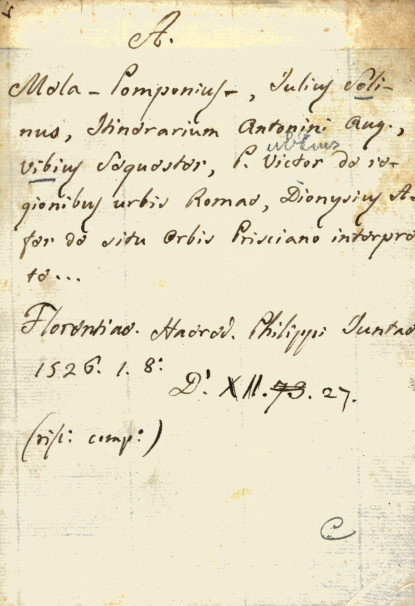 A.
Mela - Pomponius, Julius Soli-
nus, Itinerarium Antonini Aug.,
Vibius Sequester, P. Victor de re-
gionibus urbis Romae, Dionysius A-
fer de situ Orbis Prisciano interpre
te...
Florentiae. Haered. Philippi Juntae
1526. 1. 8:
D: XII. 73. 27.
(risc: comp:)
C